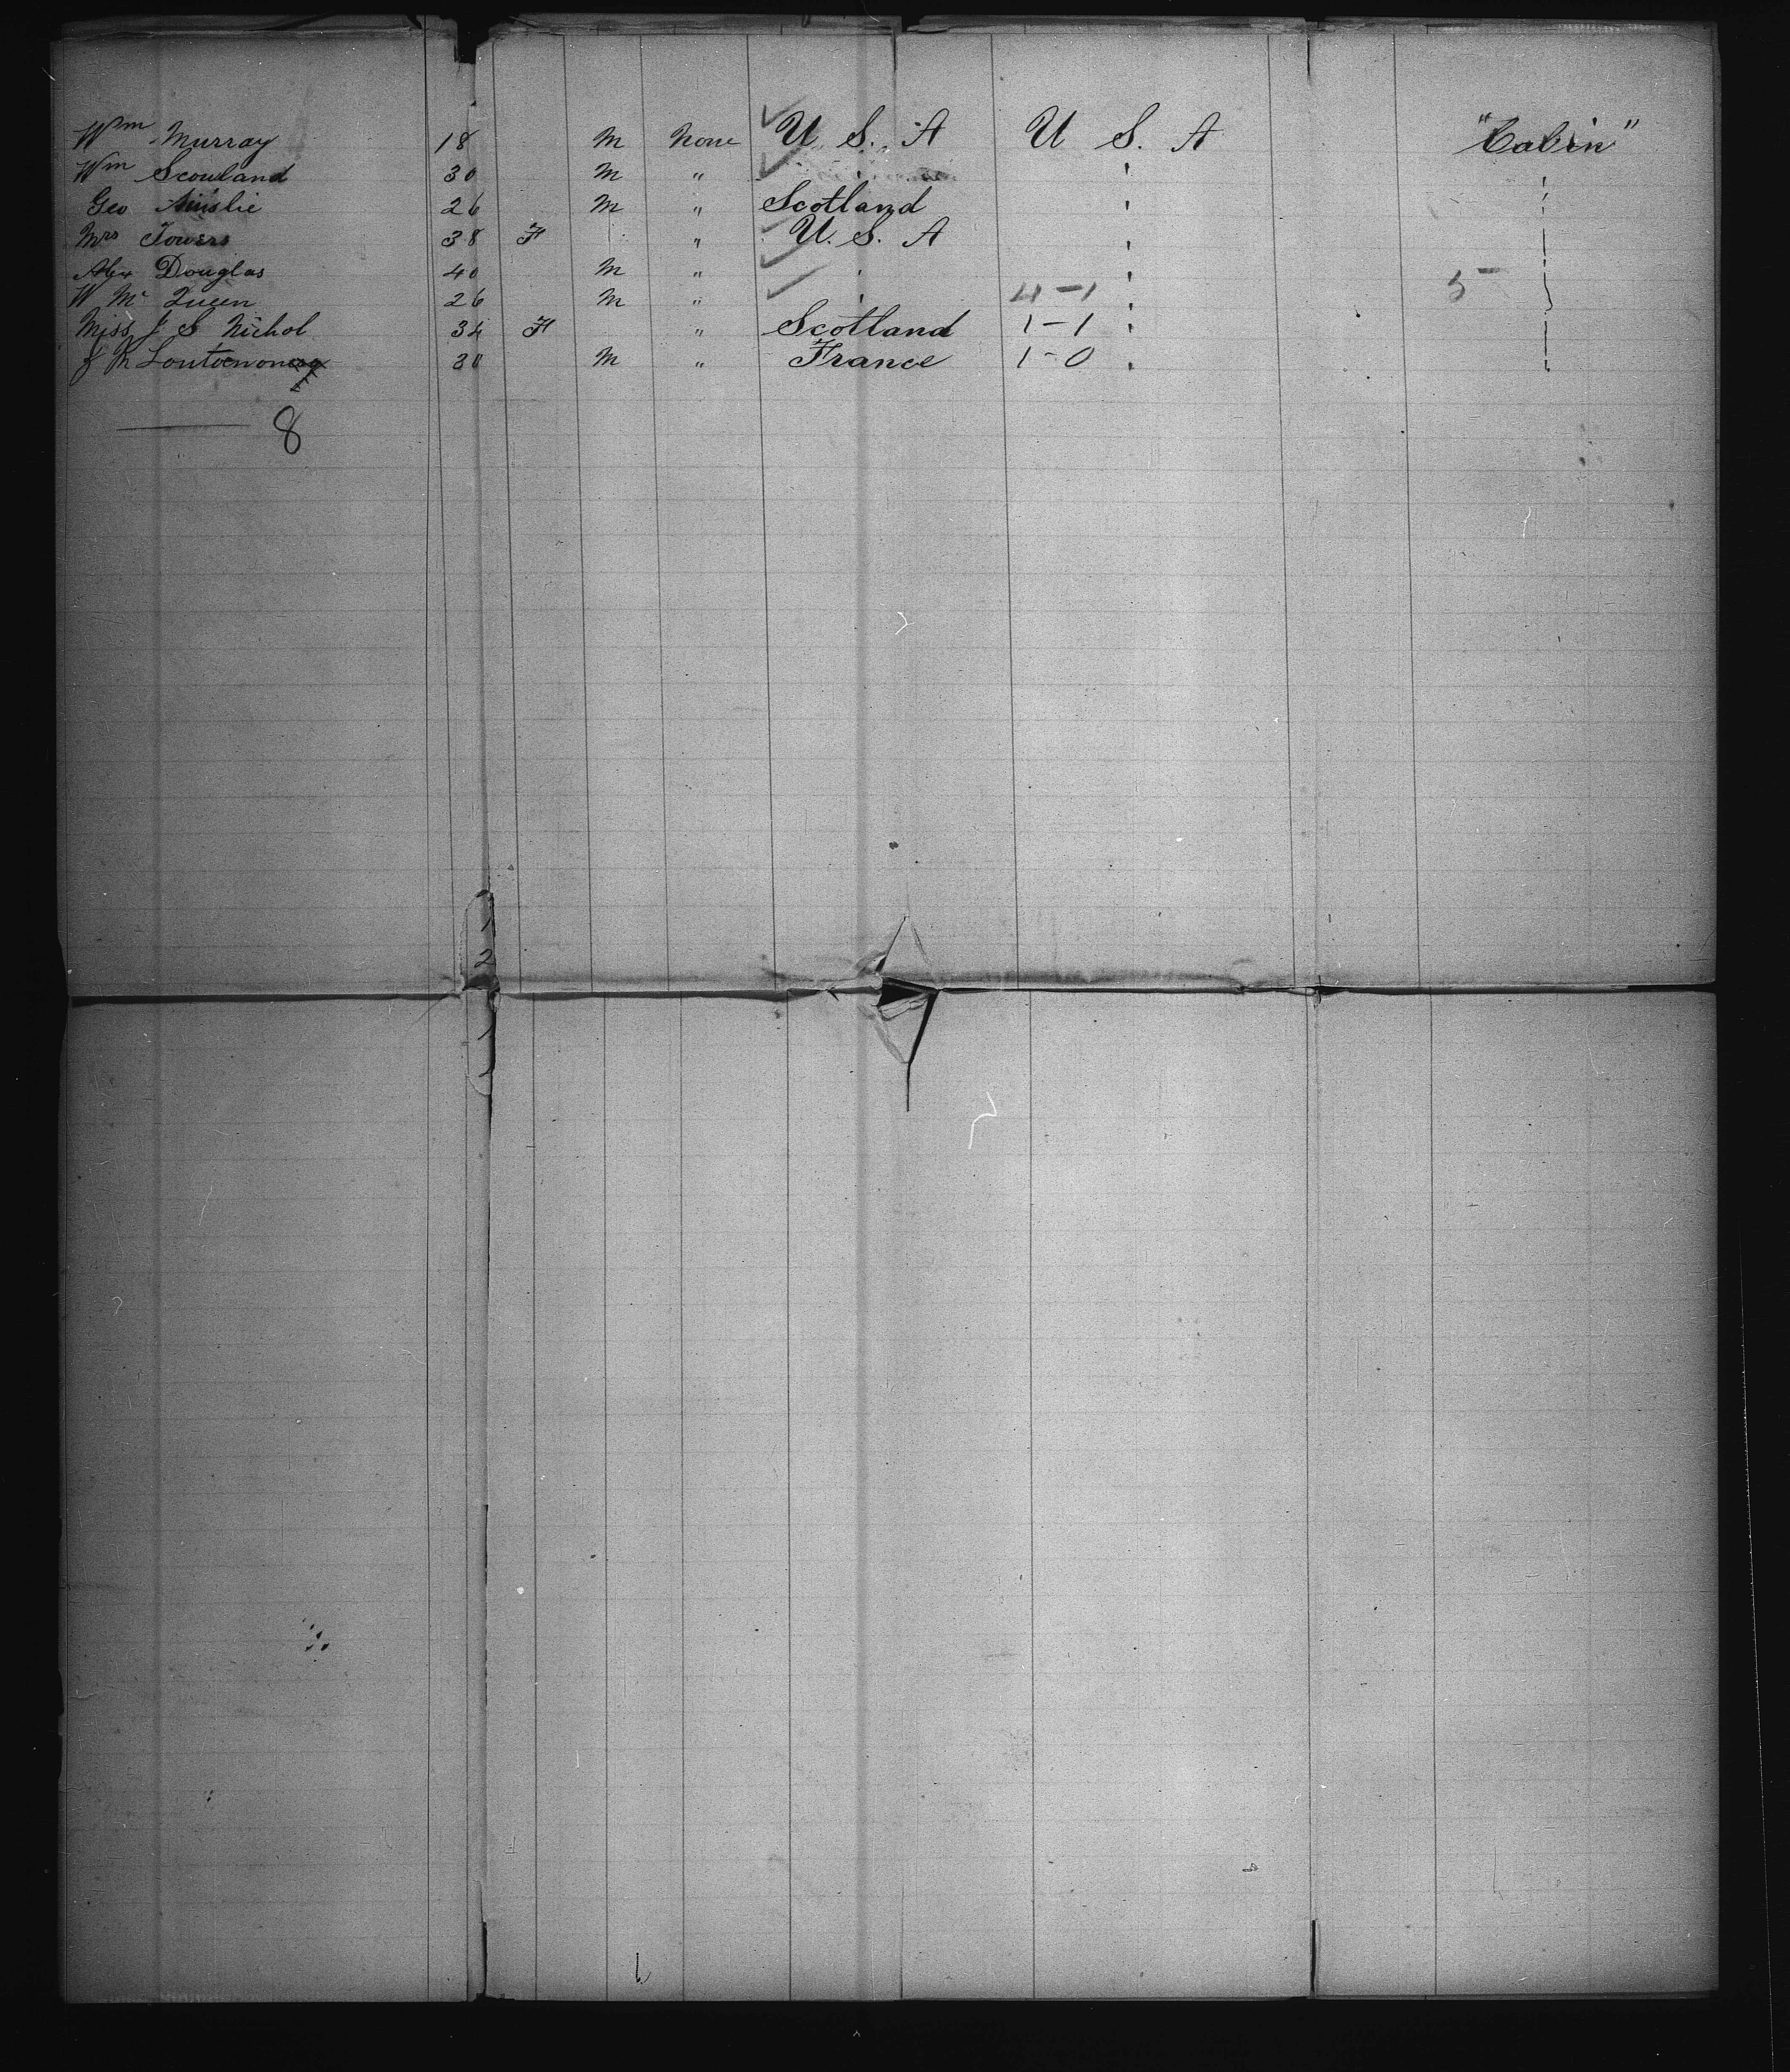 Wm Murray 18 M None U. S. A U S. A "Cabin"
Wm Scouland 30 M " '
Geo Ainslie 26 M " Scotland '
Mrs Towers 38 F " U. S. A '
Alex Douglas 40 M " ' ' 5
W Mc Queen 26 M " ' 4-1 '
Miss J S Nichol 34 F " Scotland 1-1 '
30 M " France 1-0 '
8